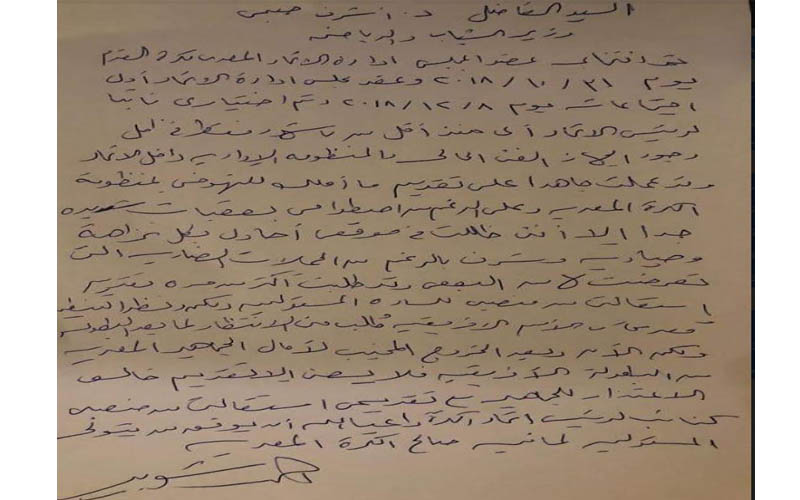 السيد الفاضل د. أشرف صبحي
وزير الشباب والرياضة
تم انتخابي عضو المجلس إدارة الاتحاد المصرى لكرة القدم
يوم ٢٠١٨/١٠/٣١ وعقد مجلس إدارة الاتحاد أول
اجتماعاته يوم ٢٠١٨/١٢/٨ وتم اختيارى نائبا
لرئيس الاتحاد أى منذ أقل من شهور فقط في ظل
وجود الجهاز الفنى الحالى والمنظومة الإدارية داخل الاتحاد
وقد عملت جاهدا على تقديم ما أملك للنهوض بمنظومة
الكرة المصرية وعلى الرغم من اصطدامى بعقبات شديدة
جدا إلا أننى ظللت في موقعى أحاول بكل نزاهة
وحيادية وشرف بالرغم من الحملات الضارية التى
تعرضت لها من البعض وقد طلبت أكثر من مرة تقديم
استقالتى من منصبى للسادة المسئولين ولكن ونظرا لتنظيم
مصر كأس الأمم الافريقية طلب منى الانتظار لما بعد البطولة
ولكن الآن وبعد الخروج المخيب لآمال الجماهير المصرية
من البطولة الأفريقية فلا يسعنى إلا تقديم خالص
الاعتذار للجماهير مع تقديمى استقالتى من منصبى
كنائب لرئيس اتحاد الكرة داعيا الله أن يوفق من يتولى
المسئولية لما فيه صالح الكرة المصرية
أحمد شوبير